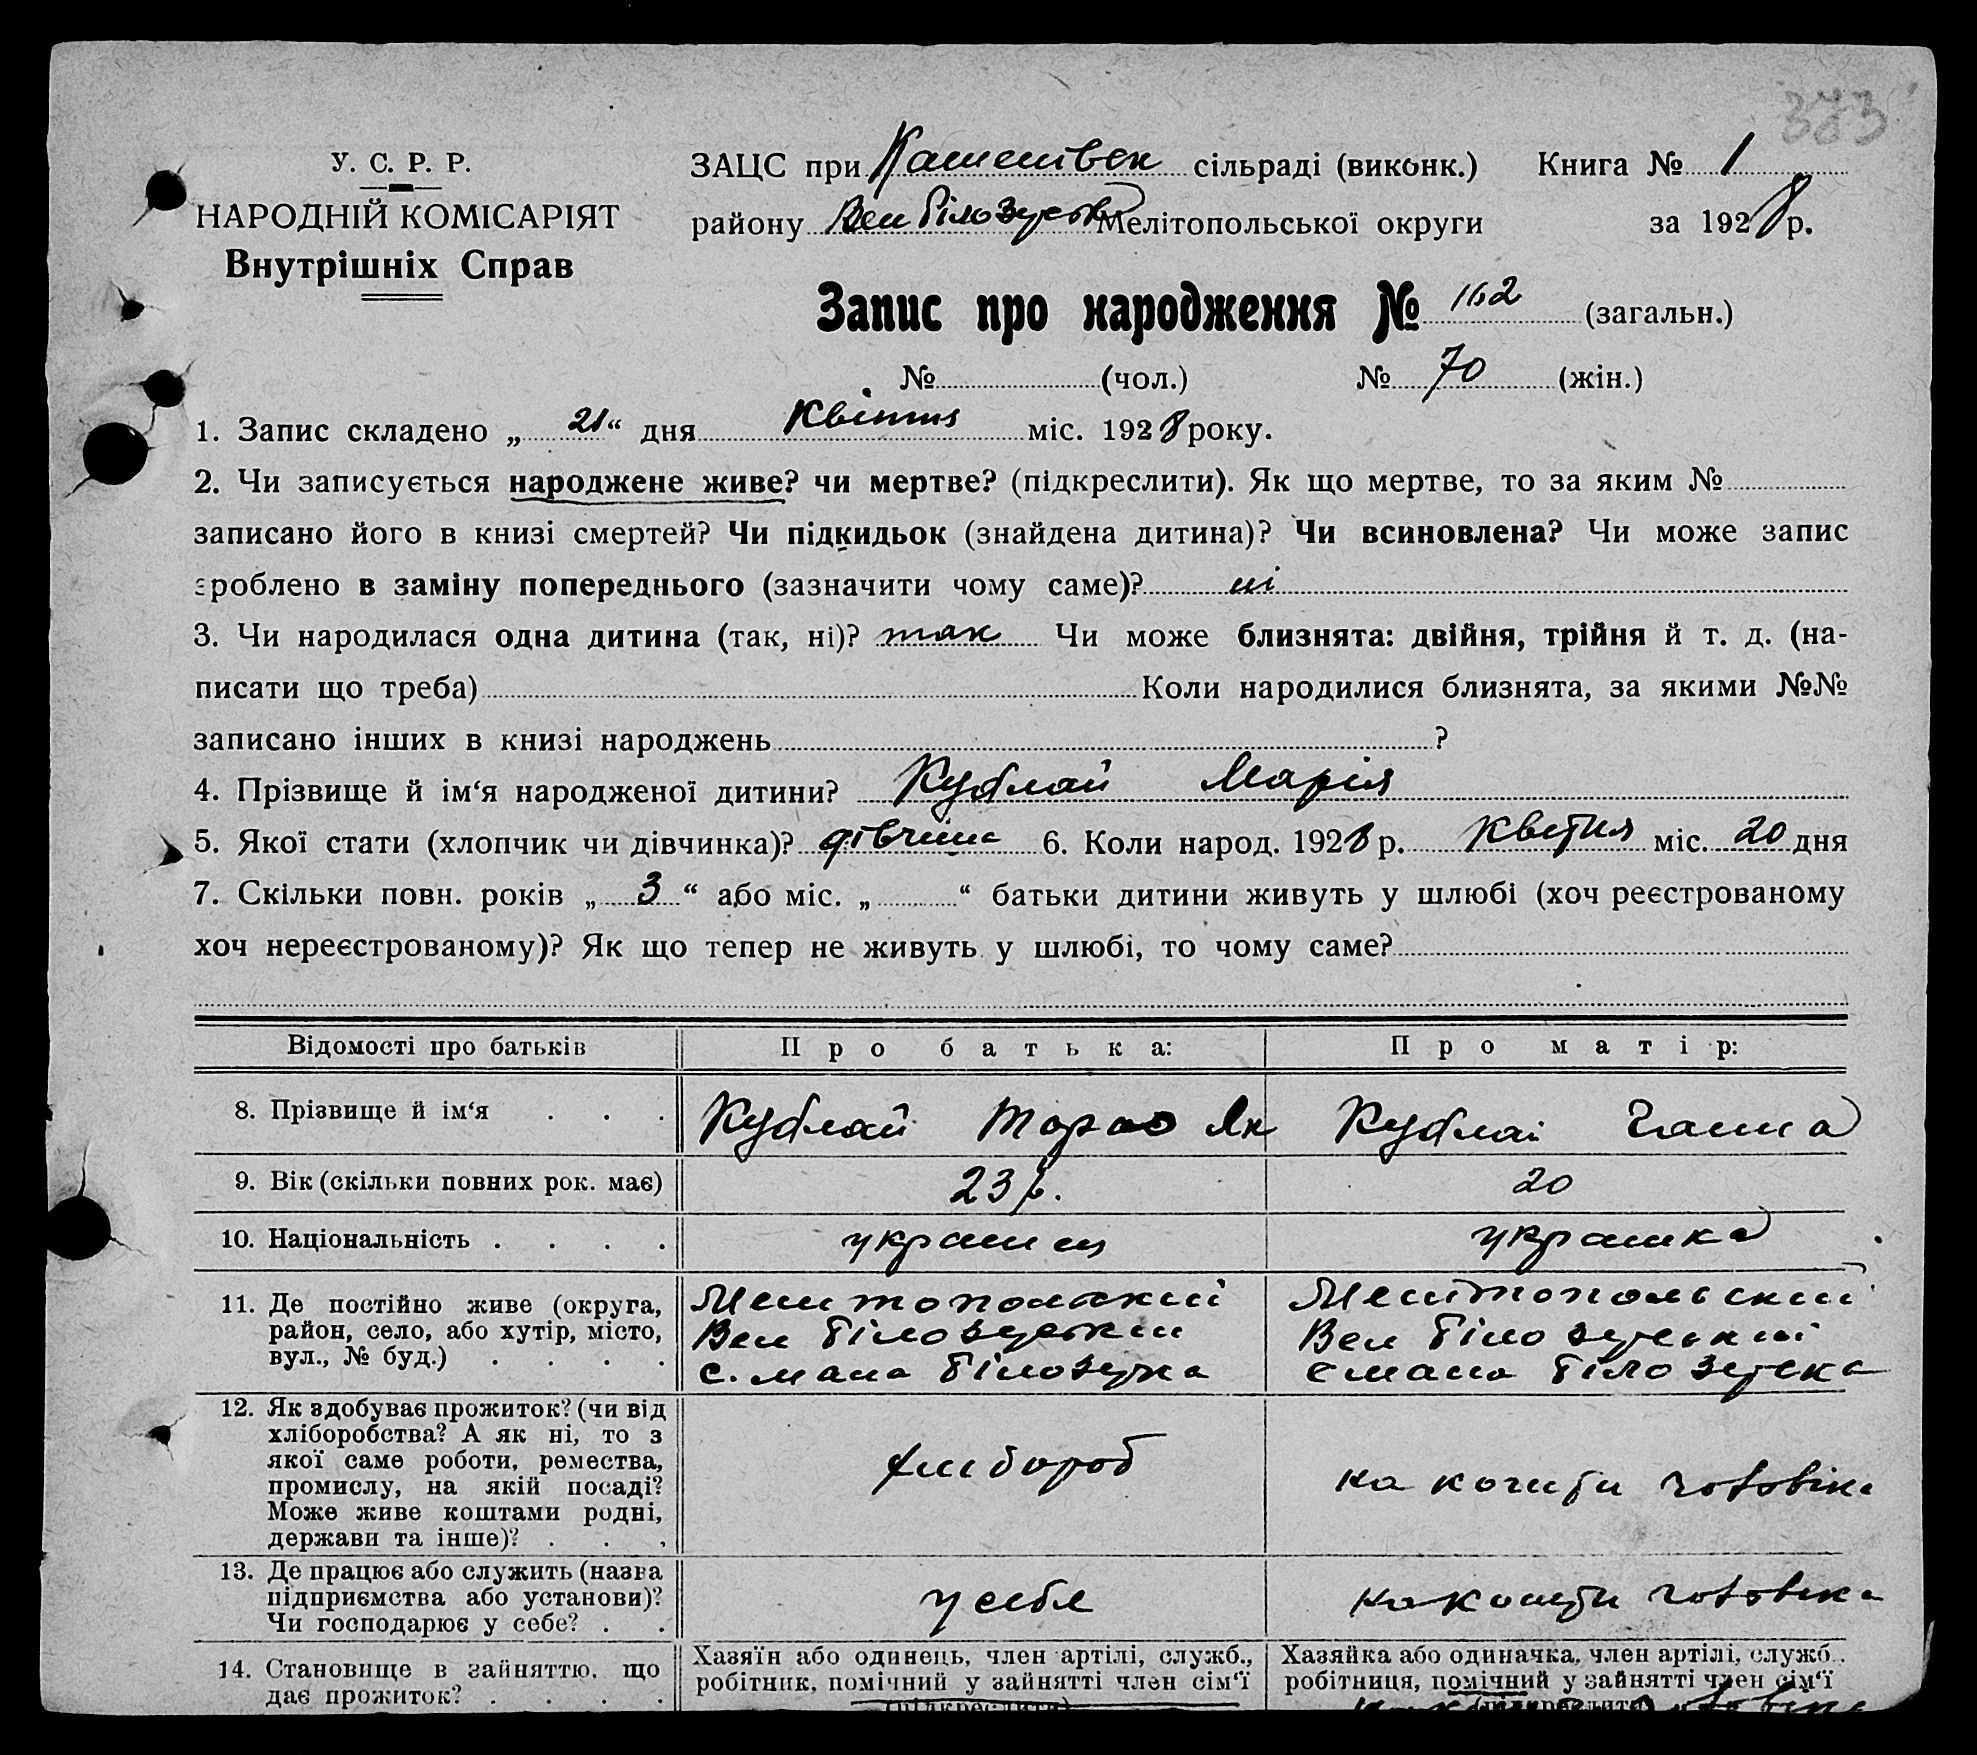 383
У. С. Р. Р.
НАРОДНІЙ КОМІСАРІЯТ
Внутрішніх Справ
ЗАЦС при сільраді (виконк.) Книга № 1
району Вел Білозурськ Мелітопольської округи за 1928 р.
Запис про народження № 162 (загальн.)
№ (чол.) № 70 (жін.)
1. Запис складено „ 21 “ дня Квітня міс. 1928 року.
2. Чи записується народжене живе? чи мертве? (підкреслити). Як що мертве, то за яким №
записано його в книзі смертей? Чи підкидьок (знайдена дитина)? Чи всиновлена? Чи може запис
зроблено в заміну попереднього (зазначити чому саме)? ні
3. Чи народилася одна дитина (так, ні)? так Чи може близнята: двійня, трійня й т. д. (на-
писати що треба) Коли народилися близнята, за якими №№
записано інших в книзі народжень ?
4. Прізвище й ім‘я народженої дитини? Кублай Марія
5. Якої стати (хлопчик чи дівчинка)? дівчина 6. Коли народ. 1928 р. Квітня міс. 20 дня
7. Скільки повн. років „ 3 “ або міс. „ “ батьки дитини живуть у шлюбі (хоч реєстрованому
хоч нереєстрованому)? Як що тепер не живуть у шлюбі, то чому саме?
Відомості про батьків Про батька: Про матір:
8. Прізвище й ім‘я . . . Кублай Тарас Як Кублай Ганна
9. Вік (скільки повних рок. має) 23 р. 20
10. Національність . . . . украинец украинка
11. Де постійно живе (округа,
район, село, або хутір, місто,
вул., № буд.) . . . .
Мелитопольский
Вел Білозурский
с. мала Білозурка
Мелитопольский
Вел Білозурский
с мала Білозурка
12. Як здобуває прожиток? (чи від
хліборобства? А як ні, то з
якої саме роботи, ремества,
промислу, на якій посаді?
Може живе коштами родні,
держави та інше)? . . .
хлибороб
на кошти чоловіка
13. Де працює або служить (назва
підприємства або установи)?
Чи господарює у себе? . .
у себе
на кошти чоловіка
14. Становище в зайняттю, що
дає прожиток? . . . .
Хазяїн або одинець, член артілі, служб.,
робітник, помічний у зайнятті член сім‘ї
(підкреслити)
Хазяйка або одиначка, член артілі, служб.,
робітниця, помічний у зайнятті член сім‘ї
(підкреслити)